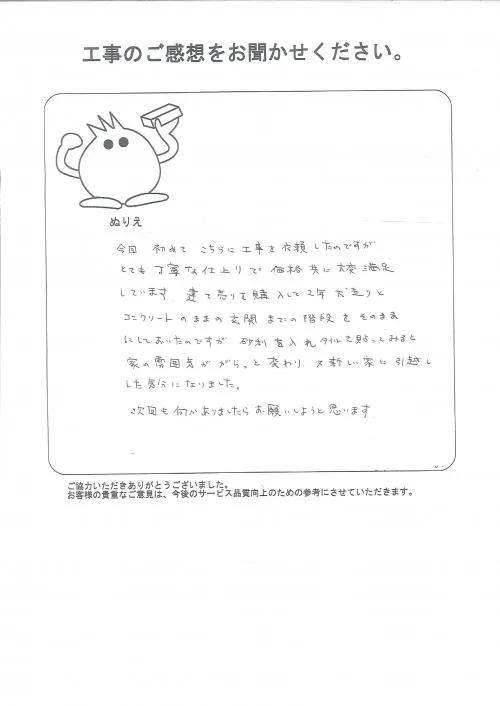 工事のご感想をお聞かせください。
ぬりえ
今回 初めて こちらに工事を依頼したのですが
とても丁寧な仕上りで価格共に大変満足
しています。建て売りで購入して2年 犬走りと
コンクリートのままの玄関までの階段をそのまま
にしておいたのですが 砂利を入れタイルを貼ってみると
家の雰囲気ががらっと変わり 又新しい家に引越し
した気分になりました。
次回も何かありましたらお願いしようと思います
ご協力いただきありがとうございました。
お客様の貴重なご意見は、今後のサービス品質向上のための参考にさせていただきます。